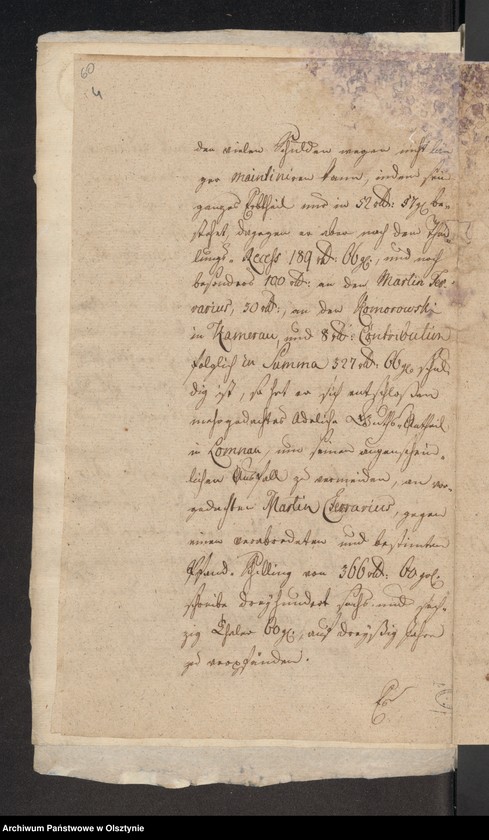 60
4
der vielen Schulden wegen nicht län
ger maintiniren kann, indem sein
ganzes Erbtheil nur in 52 rth: 57 gl be-
stehet, dagegen er aber nach dem Thei-
lungs-Recess 189 rth: 66 gl, und noch
besonders 100 rth: an den Martin Fer-
rarius, 30 rth:, an den Komorowski
in Kamerau, und 8 rth: Contribution
folglich in Summa 327 rth. 66 gl, schul
dig ist, so hat er sich entschlossen
mehrgedachtes Adeliche Guths-Antheil
in Lomnau, um seinen augenschein-
lichen Ausfall zu vermeiden, an vor-
gedachten Martin Ferrarius, gegen
einen verabredeten und bestimten
Pfand-Schilling von 366 rth: 60 gl.
schreibe dreyhundert sechs und sech-
zig Thaler 60 gl, auf dreyßig Jahre
zu verpfänden.
Es
Archiwum Państwowe w Olsztynie